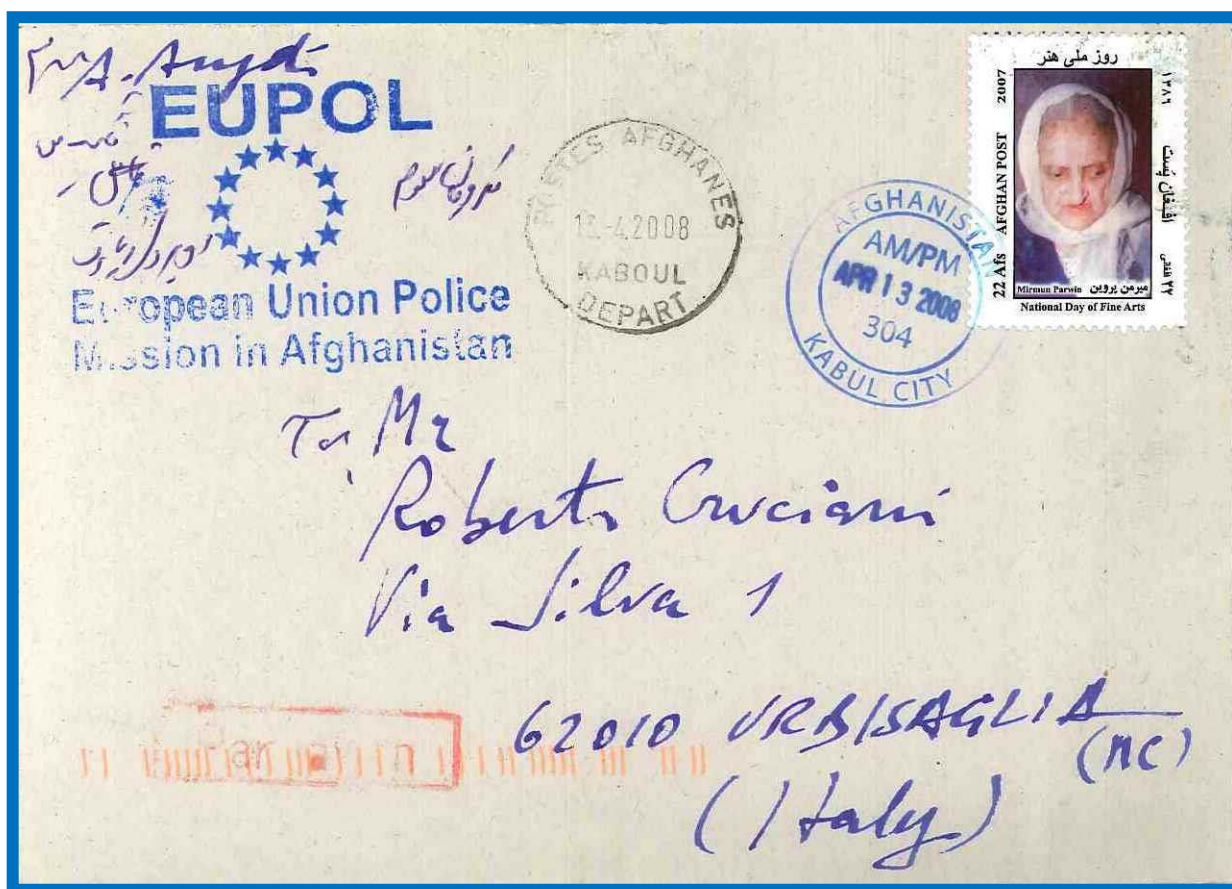 EUPOL
European Union Police
Mission in Afghanistan
POSTES AFGHANES
13.-4.2008
KABOUL
DEPART
AFGHANISTAN
AM/PM
APR 13 2008
304
KABUL CITY
روز ملی هنر
22 Afs AFGHAN POST 2007
۱۳۸۶ افغان پست ۲۲ افغانی
Mirmun Parwin میرمن پروین
National Day of Fine Arts
To Mr
Roberto Cruciani
Via Silva 1
62010 URBISAGLIA
(MC)
(Italy)